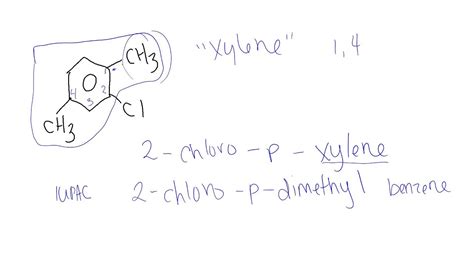 "xylene" 1,4
CH₃
1
4 2
3
Cl
CH₃
2-chloro-p-xylene
IUPAC 2-chloro-p-dimethyl benzene